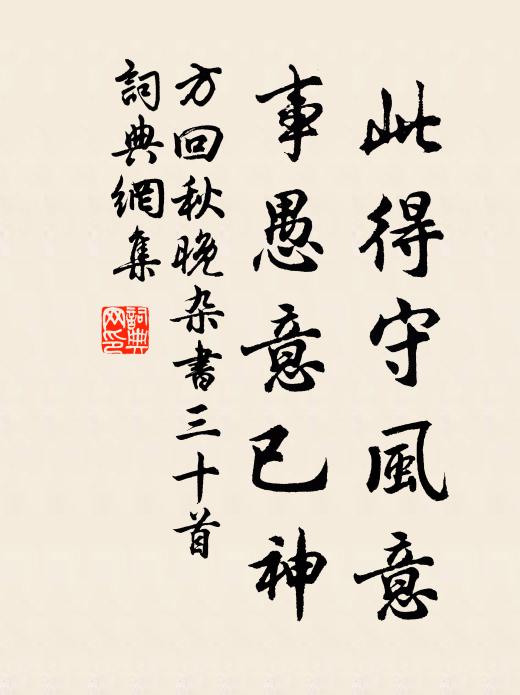 此得守風意
事愚意已神
方回秋晚杂書三十首
詞典網集
詞典
网印